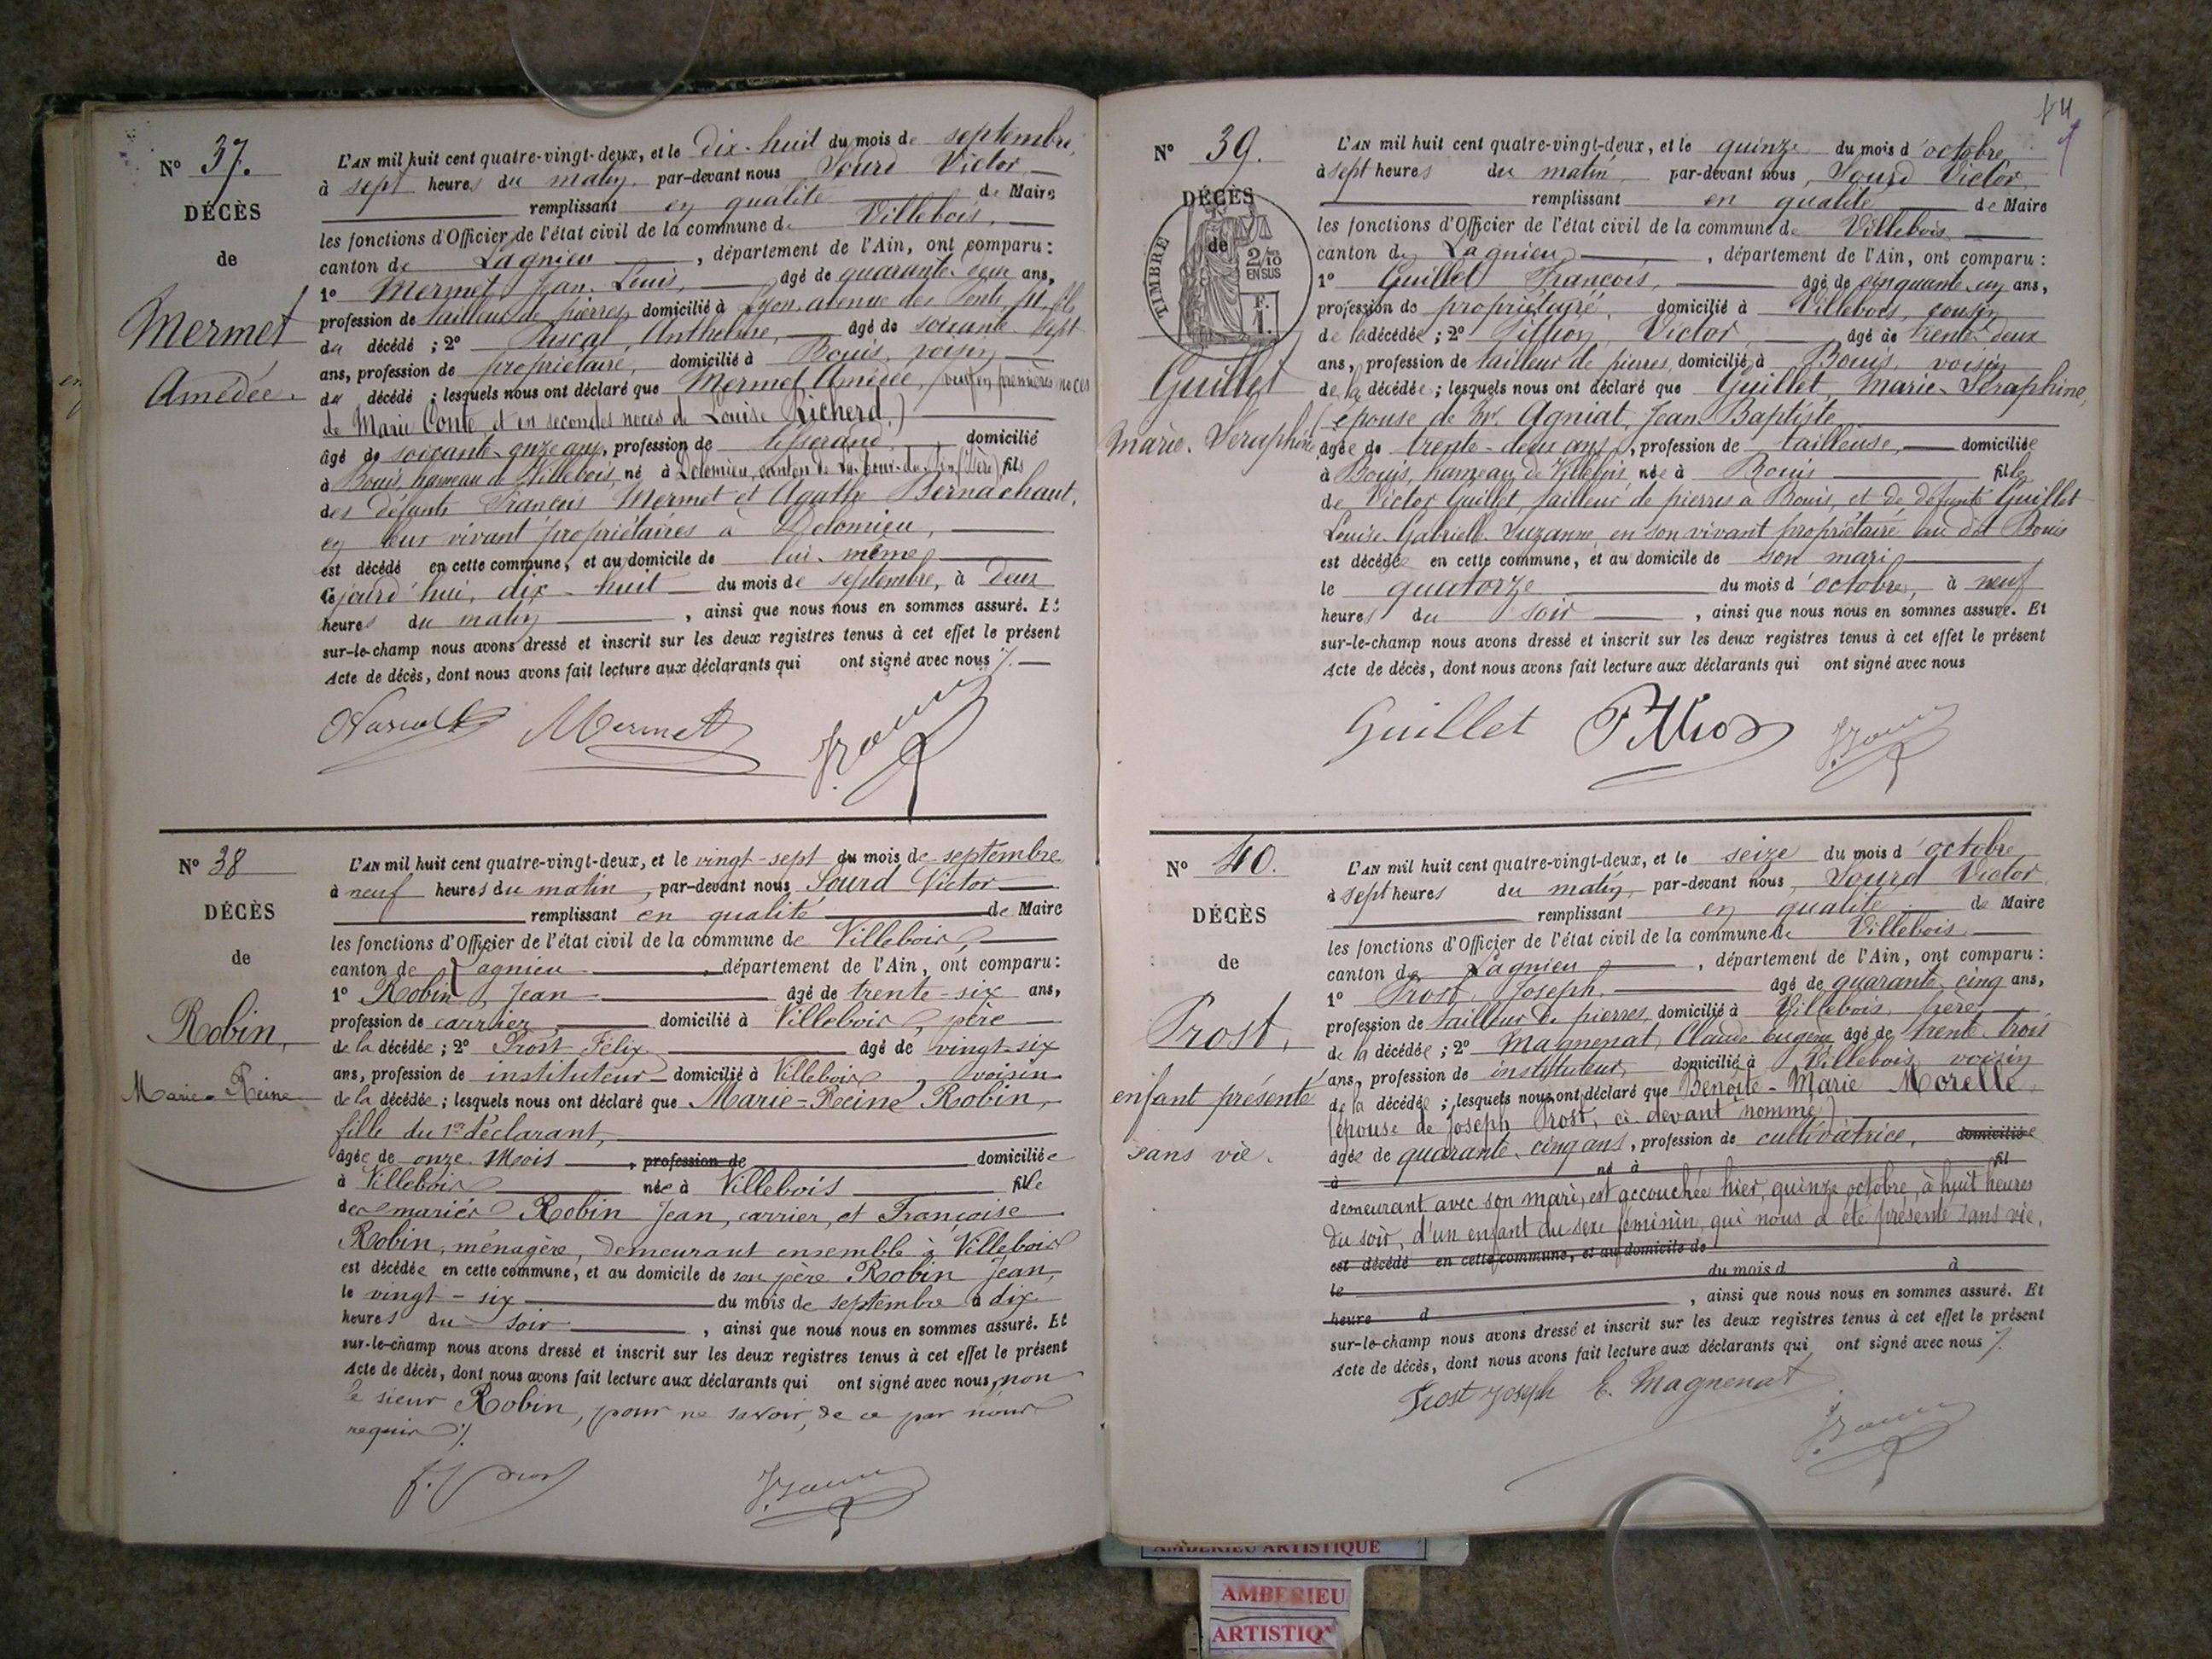 N° 37.
DÉCÈS
de
Mermet
Amédée.
L'AN mil huit cent quatre-vingt-deux, et le dix-huit du mois de septembre,
à sept heures du matin, par-devant nous Sourd Victor,
remplissant en qualité de Maire
les fonctions d'Officier de l'état civil de la commune de Villebois,
canton de Lagnieu, département de l'Ain, ont comparu :
1° Mermet Jean-Louis, âgé de quarante-deux ans,
profession de tailleur de pierres, domicilié à Lyon, avenue des Ponts, fils
du décédé ; 2° Anthelme, âgé de soixante-sept
ans, profession de propriétaire, domicilié à Bouis, voisin
du décédé ; lesquels nous ont déclaré que Mermet Amédée, (veuf en premières noces
de Marie Conte, et en secondes noces de Louise Richerd)
âgé de soixante-onze ans, profession de tisserand, domicilié
à Bouis, hameau de Villebois, né à Dolomieu, canton de La-Tour-du-Pin (Isère) fils
des défunts François Mermet et Agathe Bernachaut,
en leur vivant propriétaires à Dolomieu,
est décédé en cette commune, et au domicile de lui-même
ce jourd'hui, dix-huit du mois de septembre, à deux
heures du matin, ainsi que nous nous en sommes assuré. Et
sur-le-champ nous avons dressé et inscrit sur les deux registres tenus à cet effet le présent
Acte de décès, dont nous avons fait lecture aux déclarants qui ont signé avec nous ./.
Mermet
N° 38
DÉCÈS
de
Robin,
Marie-Reine
L'AN mil huit cent quatre-vingt-deux, et le vingt-sept du mois de septembre
à neuf heures du matin, par-devant nous, Sourd Victor
remplissant en qualité de Maire
les fonctions d'Officier de l'état civil de la commune de Villebois,
canton de Lagnieu, département de l'Ain, ont comparu :
1° Robin, Jean âgé de trente-six ans,
profession de carrier, domicilié à Villebois, père
de la décédée ; 2° Prost Félix âgé de vingt-six
ans, profession de instituteur domicilié à Villebois, voisin
de la décédée ; lesquels nous ont déclaré que Marie-Reine Robin,
fille du 1er déclarant,
âgée de onze mois, profession de domiciliée
à Villebois née à Villebois fille
des mariés Robin Jean, carrier, et Françoise
Robin, ménagère, demeurant ensemble à Villebois
est décédée en cette commune, et au domicile de son père Robin Jean,
le vingt-six du mois de septembre à dix
heures du soir, ainsi que nous nous en sommes assuré. Et
sur-le-champ nous avons dressé et inscrit sur les deux registres tenus à cet effet le présent
Acte de décès, dont nous avons fait lecture aux déclarants qui ont signé avec nous, non
le sieur Robin, pour ne savoir, de ce par nous
requis ./.
N° 39.
DÉCÈS
de
TIMBRE
2/10
EN SUS
F.
1.
Guillet
Marie-Séraphine
L'AN mil huit cent quatre-vingt-deux, et le quinze du mois d'octobre
à sept heures du matin, par-devant nous, Sourd Victor,
remplissant en qualité de Maire
les fonctions d'Officier de l'état civil de la commune de Villebois
canton de Lagnieu, département de l'Ain, ont comparu :
1° Guillet François, âgé de cinquante-un ans,
profession de propriétaire, domicilié à Villebois, cousin
de la décédée ; 2° Victor, âgé de trente-deux
ans, profession de tailleur de pierres, domicilié à Bouis, voisin
de la décédée ; lesquels nous ont déclaré que Guillet, Marie-Séraphine,
(épouse de Mr. Agniat, Jean-Baptiste
âgée de trente-deux ans), profession de tailleuse, domiciliée
à Bouis, hameau de Villebois, née à Bouis fille
de Victor Guillet, tailleur de pierres à Bouis, et de défunte Guillet
Louise-Gabrielle-Suzanne, en son vivant propriétaire au dit Bouis
est décédée en cette commune, et au domicile de son mari
le quatorze du mois d'octobre, à neuf
heures du soir, ainsi que nous nous en sommes assuré. Et
sur-le-champ nous avons dressé et inscrit sur les deux registres tenus à cet effet le présent
Acte de décès, dont nous avons fait lecture aux déclarants qui ont signé avec nous
Guillet
N° 40.
DÉCÈS
de
Prost,
enfant présenté
sans vie.
L'AN mil huit cent quatre-vingt-deux, et le seize du mois d'octobre
à sept heures du matin, par-devant nous, Sourd Victor,
remplissant en qualité de Maire
les fonctions d'Officier de l'état civil de la commune de Villebois
canton de Lagnieu, département de l'Ain, ont comparu :
1° Prost, Joseph, âgé de quarante-cinq ans,
profession de tailleur de pierres, domicilié à Villebois, père
de la décédée ; 2° Magnenat, Claude Eugène âgé de trente-trois
ans, profession de instituteur, domicilié à Villebois, voisin
de la décédée ; lesquels nous ont déclaré que Benoîte-Marie Morelle,
(épouse de Joseph Prost, ci-devant nommé)
âgée de quarante-cinq ans, profession de cultivatrice, domiciliée
à né à fil
demeurant avec son mari, est accouchée hier, quinze octobre, à huit heures
du soir, d'un enfant du sexe féminin, qui nous a été présenté sans vie.
est décédé en cette commune, et au domicile de
le du mois d à
heure d, ainsi que nous nous en sommes assuré. Et
sur-le-champ nous avons dressé et inscrit sur les deux registres tenus à cet effet le présent
Acte de décès, dont nous avons fait lecture aux déclarants qui ont signé avec nous ./.
Prost Joseph E. Magnenat
AMBERIEU ARTISTIQUE
AMBERIEU
ARTISTIQ